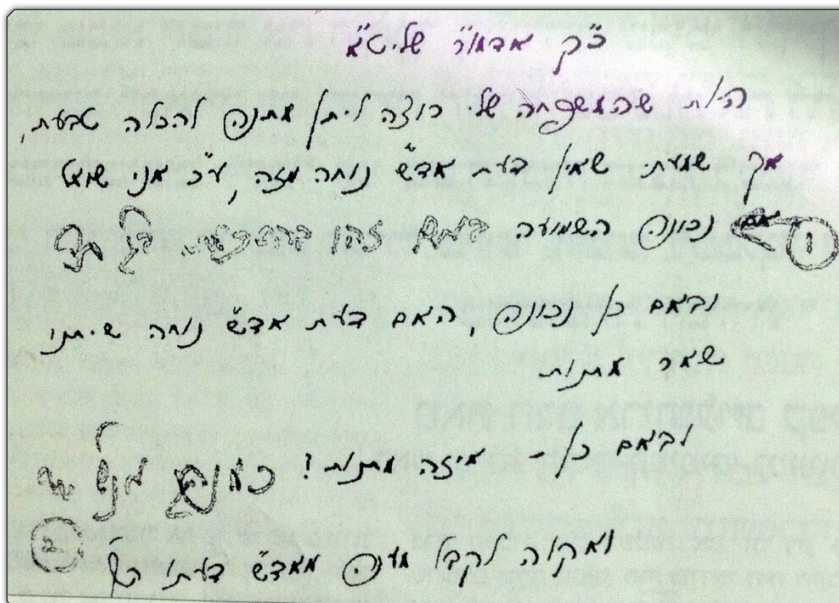 כ"ק אדמו"ר שליט"א
היות שהמשפחה שלי רוצה ליתן מתנה להכלה טבעת,
אך שמעתי שאין דעת אד"ש נוחה מזה, ע"כ אני שואל
1 אם נכונה השמועה
ובאם כן נכונה, האם דעת אד"ש נוחה שיתנו
שאר מתנות
ובאם כן - איזה מתנות? כמנהג
2
ואקוה לקבל מענה מאד"ש דעתו הק'